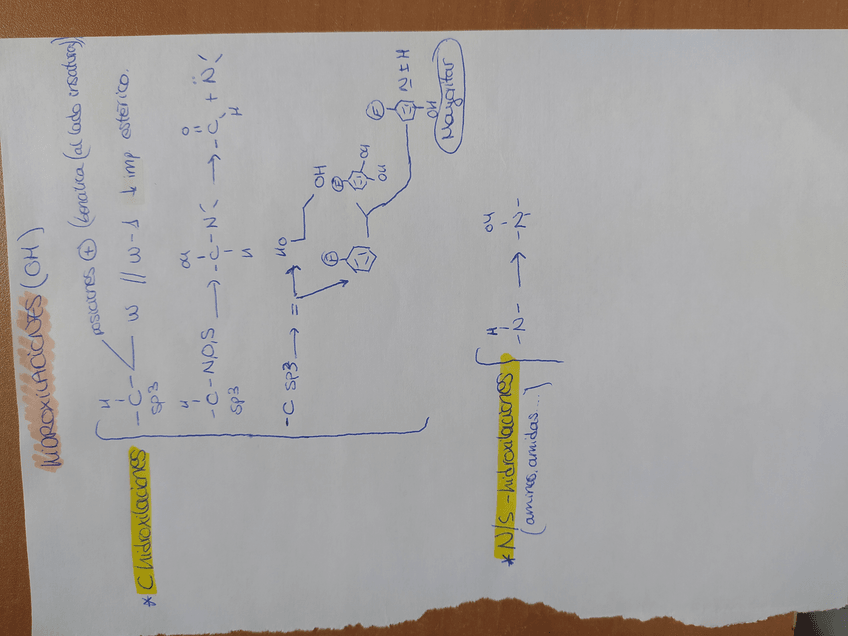 HIDROXILACIONES (OH)
* C hidroxilaciones
H
-C-
sp3
posiciones + (bencílica (al lado insatura))
W // W-1 ↓ imp estérico.
H OH O
-C-N,O,S → -C-N → -C + N
sp3 H H
-C sp3 → = → HO OH
E E OH OH E N I H OH
Mayoritar
* N/S-hidroxilaciones
(aminas, amidas...)
H OH
-N- → -N-